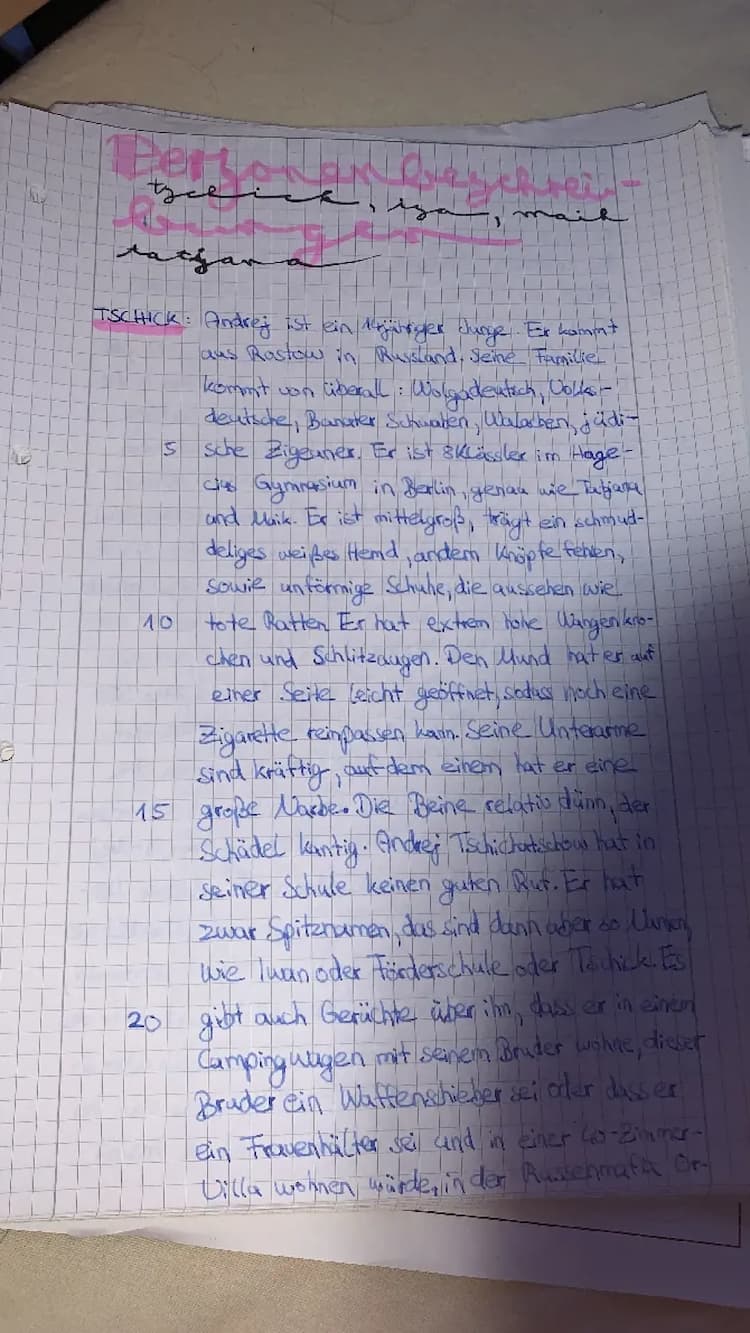 Personenbeschrei-
tschick, isa, maik
bungen
tatjana
TSCHICK: Andrej ist ein 14jähriger Junge. Er kommt
aus Rostow in Russland, seine Familie
kommt von überall: Wolgadeutsch, Volks-
deutsche, Banater Schwaben, Walachen, jüdi-
5 sche Zigeuner. Er ist 8Klässler im Hage-
cius Gymnasium in Berlin, genau wie Tatjana
und Maik. Er ist mittelgroß, trägt ein schmud-
deliges weißes Hemd, andem Knöpfe fehlen,
sowie unförmige Schuhe, die aussehen wie
10 tote Ratten. Er hat extrem hohe Wangenkno-
chen und Schlitzaugen. Den Mund hat er auf
einer Seite leicht geöffnet, sodass noch eine
Zigarette reinpassen kann. Seine Unterarme
sind kräftig, auf dem einem hat er eine
15 große Narbe. Die Beine relativ dünn, der
Schädel kantig. Andrej Tschichatschow hat in
seiner Schule keinen guten Ruf. Er hat
zwar Spitznamen, das sind dann aber so Namen
wie Iwan oder Förderschule oder Tschick. Es
20 gibt auch Gerüchte über ihn, dass er in einen
Campingwagen mit seinem Bruder wohne, dieser
Bruder ein Waffenschieber sei oder dass er
ein Frauenhälter sei und in einer 40-Zimmer-
Villa wohnen würde, in der Russenmafia Or-